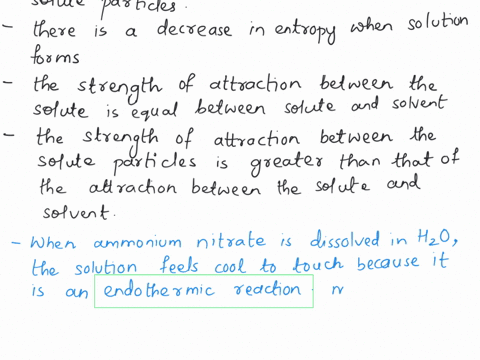 solute particles.
- there is a decrease in entropy when solution
forms
- the strength of attraction between the
solute is equal between solute and solvent
- the strength of attraction between the
solute particles is greater than that of
the attraction between the solute and
solvent.
- When ammonium nitrate is dissolved in H2O,
the solution feels cool to touch because it
is an endothermic reaction.